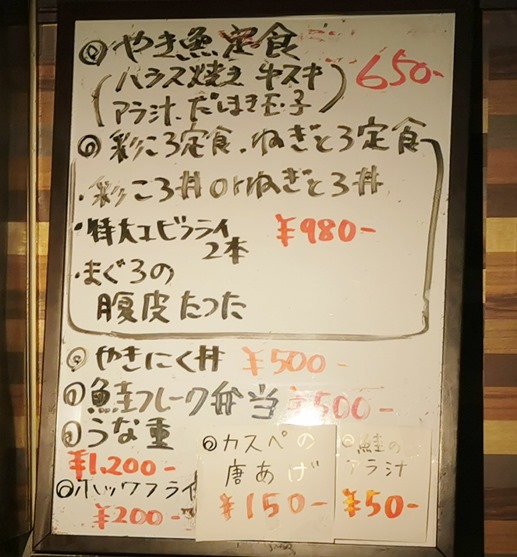 ◎やき魚定食
(ハラス焼き 牛スキ
アラ汁.だしまき玉子) 650-
◎彩ころ定食.ねぎとろ定食
・彩ころ丼orねぎとろ丼
・特大エビフライ
2本 ¥980-
・まぐろの
腹皮たつた
◎やきにく丼 ¥500-
◎鮭フレーク弁当 ¥500-
◎うな重
¥1,200-
◎ホッケフライ
¥200-
◎カスペの
唐あげ
¥150-
◎鮭の
アラ汁
¥50-